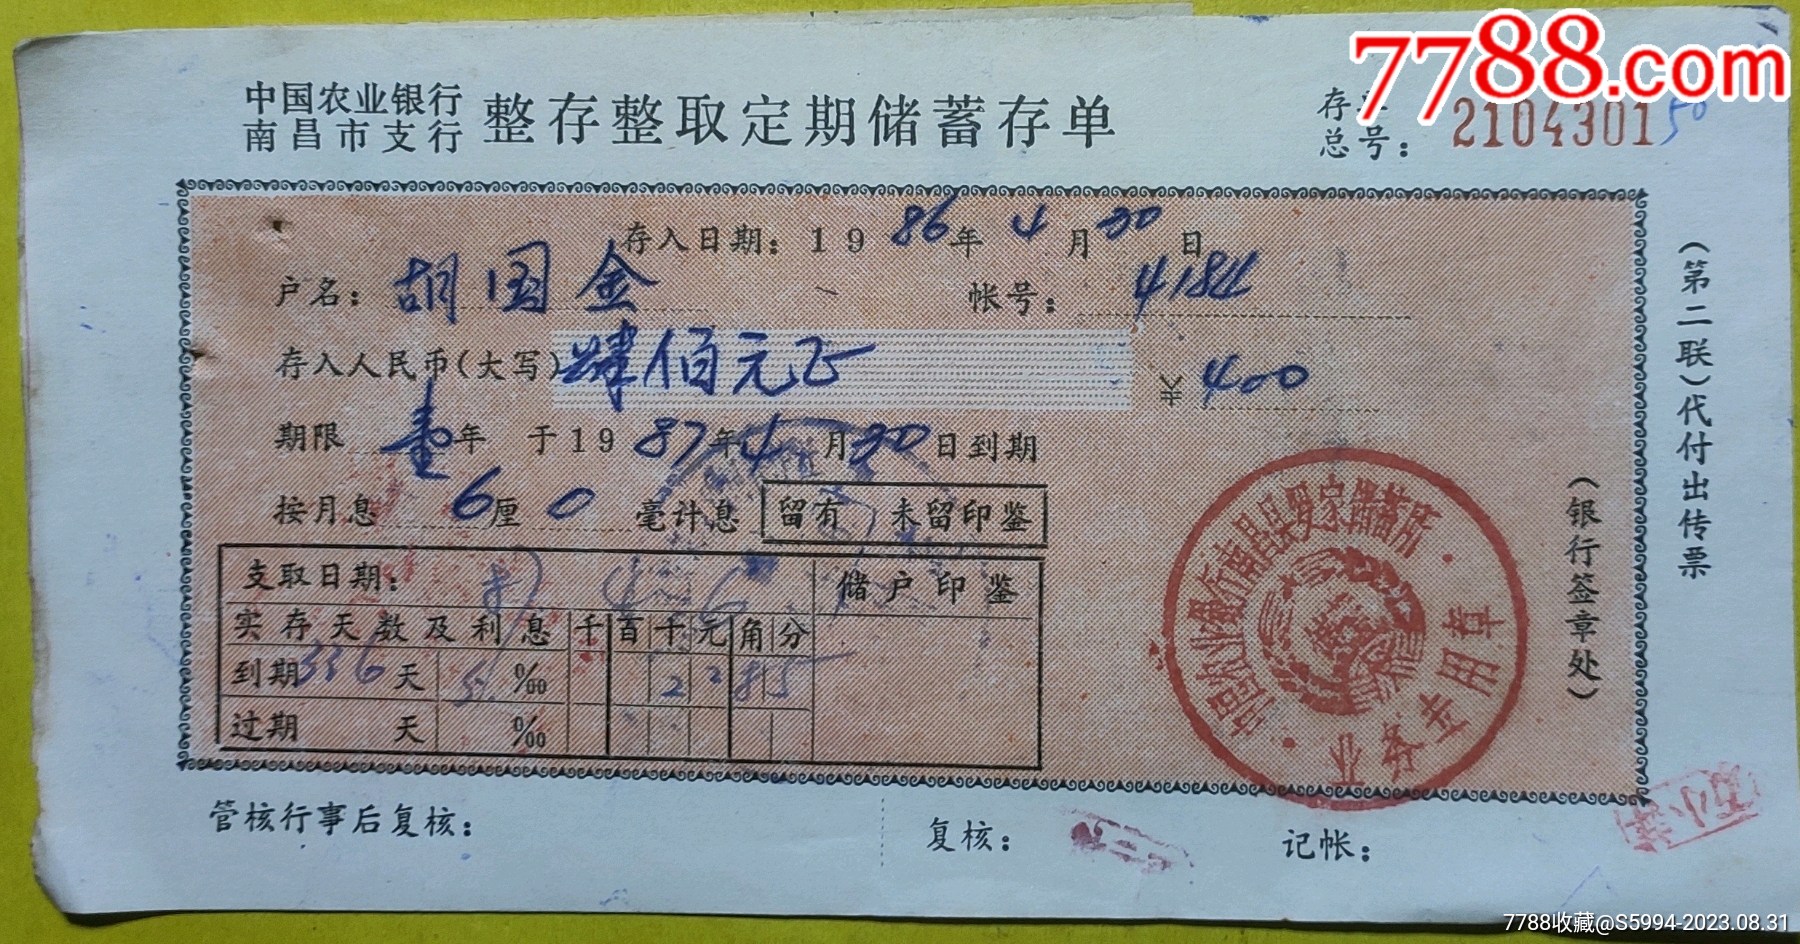 7788.com
中国农业银行
南昌市支行
整存整取定期储蓄存单
存单
总号：210430150
存入日期：1986年4月30日
户名：胡国金 帐号：4184
存入人民币(大写)肆佰元正 ¥400
期限壹年 于1987年4月30日到期
按月息6厘0毫计息 留有 未留印鉴
支取日期：87 4 6 储户印鉴
实存天数及利息 千百十元角分
到期336天 ‰ 2285
过期 天 ‰
(银行签章处)
(第二联)代付出传票
中国农业银行南昌县罗家储蓄所
业务专用章
管核行事后复核：
复核： 记帐：
7788收藏@S5994-2023.08.31